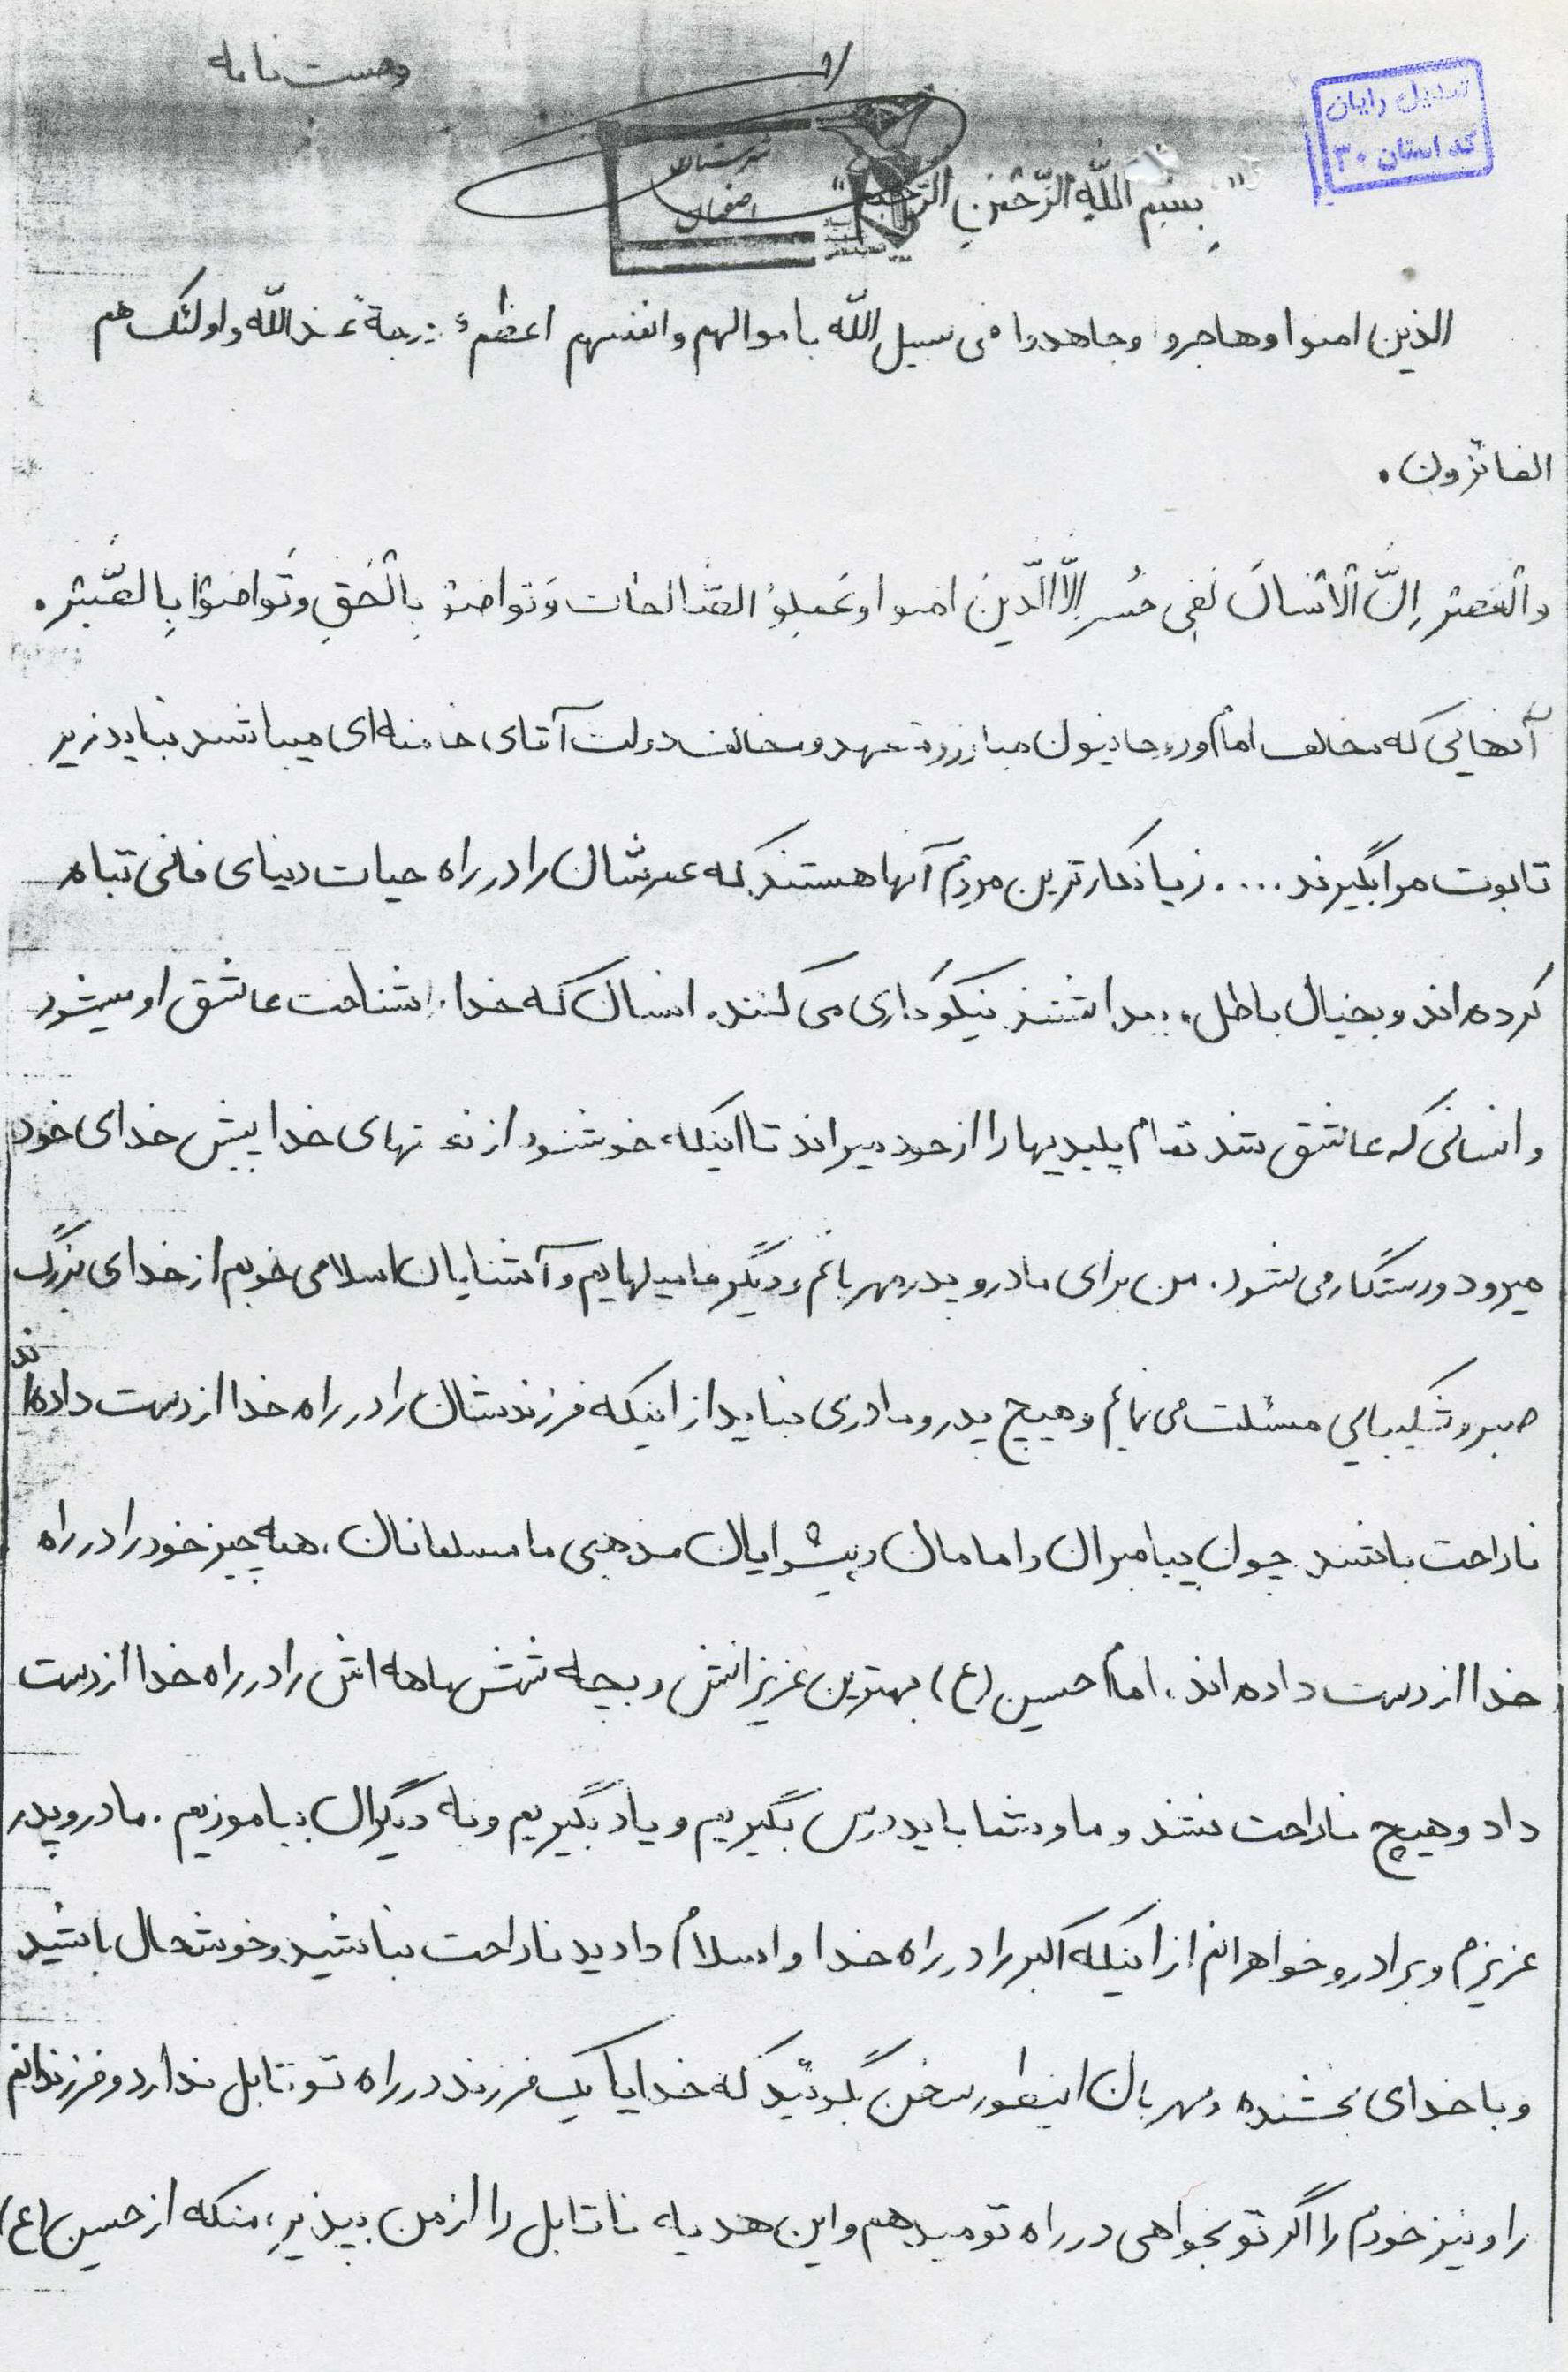 وصیت نامه
تبدیل رایان
کد استان ۳۰
شهرستان
اصفهان
" بِسْمِ اللّهِ الرَّحْمنِ الرَّحیم "
الذین امنوا وهاجرو وجاهدوا فی سبیل اللّه باموالهم وانفسهم اعظم درجة عنداللّه واولئک هم
الفائزون .
والْعَصْرِ اِنَّ الْاَنْسانَ لَفِی خُسرِ اِلاّ الَّذینَ امنوا وعَمِلوُ الصّالحات وَتواصَوْ بِالْحَقِ وتَواصَوْا بِالصَّبْرِ .
آنهایی که مخالف امام وروحانیون مبارزومتعهد ومخالف دولت آقای خامنه ای میباشد نباید زیر
تابوت مرا بگیرند .... زیانکارترین مردم آنها هستند که عمرشان را در راه حیات دنیای فانی تباه
کرده اند و بخیال باطل می پنداشتند نیکوکاری می کنند. انسان که خدا را شناخت عاشق او میشود
و انسانی که عاشق شد تمام پلیدیها را از خود میراند تا اینکه خوشنود از نعمتهای خدا پیش خدای خود
میرود ورستگار می شود . من برای مادر و پدر مهربانم ودیگر فامیلهایم و آشنایان اسلامی خوبم از خدای بزرگ
صبر و شکیبایی مسئلت می نمایم و هیچ پدر و مادری نباید از اینکه فرزندشان را در راه خدا از دست داده اند
ناراحت باشند چون پیامبران وامامان وپیشوایان مذهبی ما مسلمانان ، همه چیز خود را در راه
خدا از دست داده اند ، امام حسین (ع) بهترین عزیزانش و بچه شش ماهه اش را در راه خدا از دست
داد و هیچ ناراحت نشد و ما و شما باید درس بگیریم و یاد بگیریم و به دیگران بیاموزیم . مادر و پدر
عزیزم و برادر و خواهرانم از اینکه اکبر را در راه خدا و اسلام دادید ناراحت نباشید و خوشحال باشید
و با خدای بخشنده ومهربان اینطور سخن بگوئید که خدایا یک فرزند در راه تو قابل ندارد و فرزندانم
را و نیز خودم را اگر تو بخواهی در راه تو میدهم و این هدیه ناقابل را از من بپذیر ، منکه از حسین (ع)